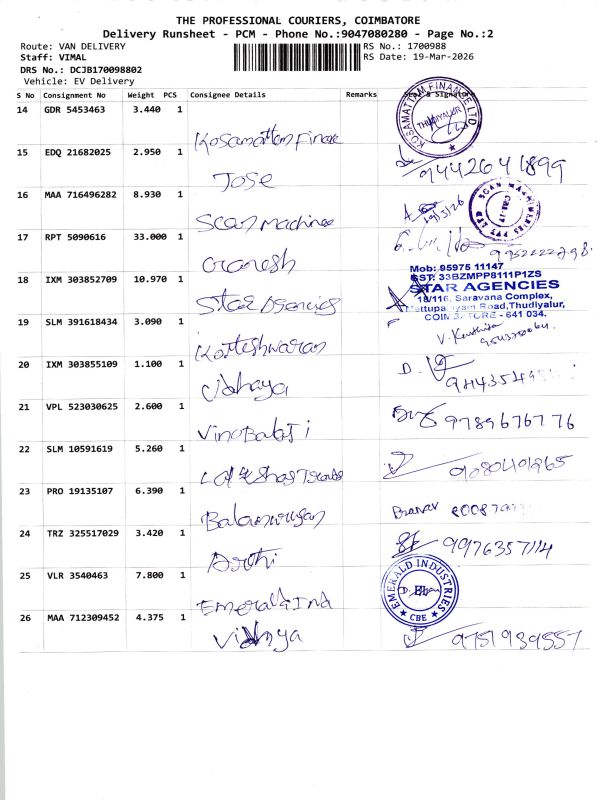 THE PROFESSIONAL COURIERS, COIMBATORE
Delivery Runsheet - PCM - Phone No.:9047080280 - Page No.:2
Route: VAN DELIVERY RS No.: 1700988
Staff: VIMAL RS Date: 19-Mar-2026
DRS No.: DCJB170098802
Vehicle: EV Delivery
S No Consignment No Weight PCS Consignee Details Remarks
14 GDR 5453463 3.440 1
KOSAMATTAM FINANCE LTD
THUDIYALUR
Kosamattam Finace
15 EDQ 21682025 2.950 1
Jose 9442641899
16 MAA 716496282 8.930 1
Scan machines 19/3/26
SCAN MACHINERIES PVT LTD
17 RPT 5090616 33.000 1
Ganesh
18 IXM 303852709 10.970 1
Mob: 95975 11147
GST: 33BZMPP8111P1ZS
STAR AGENCIES
18/116, Saravana Complex,
Mettupalayam Road, Thudiyalur,
COIMBATORE - 641 034.
Star Agencies
19 SLM 391618434 3.090 1
Kotteshwaran
20 IXM 303855109 1.100 1
21 VPL 523030625 2.600 1
Vino Balaji 9789676776
22 SLM 10591619 5.260 1
9080401265
23 PRO 19135107 6.390 1
Balamurugan Pranav
24 TRZ 325517029 3.420 1
Arthi 9976357114
25 VLR 3540463 7.800 1
Emerald Ind
EMERALD INDUSTRIES
CBE
26 MAA 712309452 4.375 1
Vidhya 9751939557